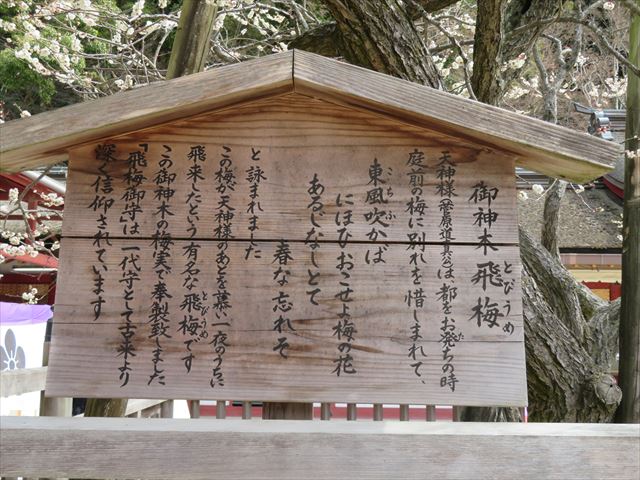 御神木 飛梅
とびうめ
天神様(菅原道真公)は、都をお発ちの時
庭前の梅に別れを惜しまれて、
東風吹かば
こちふ
にほひおこせよ梅の花
あるじなしとて
春な忘れそ
と詠まれました
この梅が天神様のあとを慕い一夜のうちに
飛来したという有名な飛梅です
とびうめ
この御神木の梅実で奉製致しました
「飛梅御守」は一代守として古来より
深く信仰されています